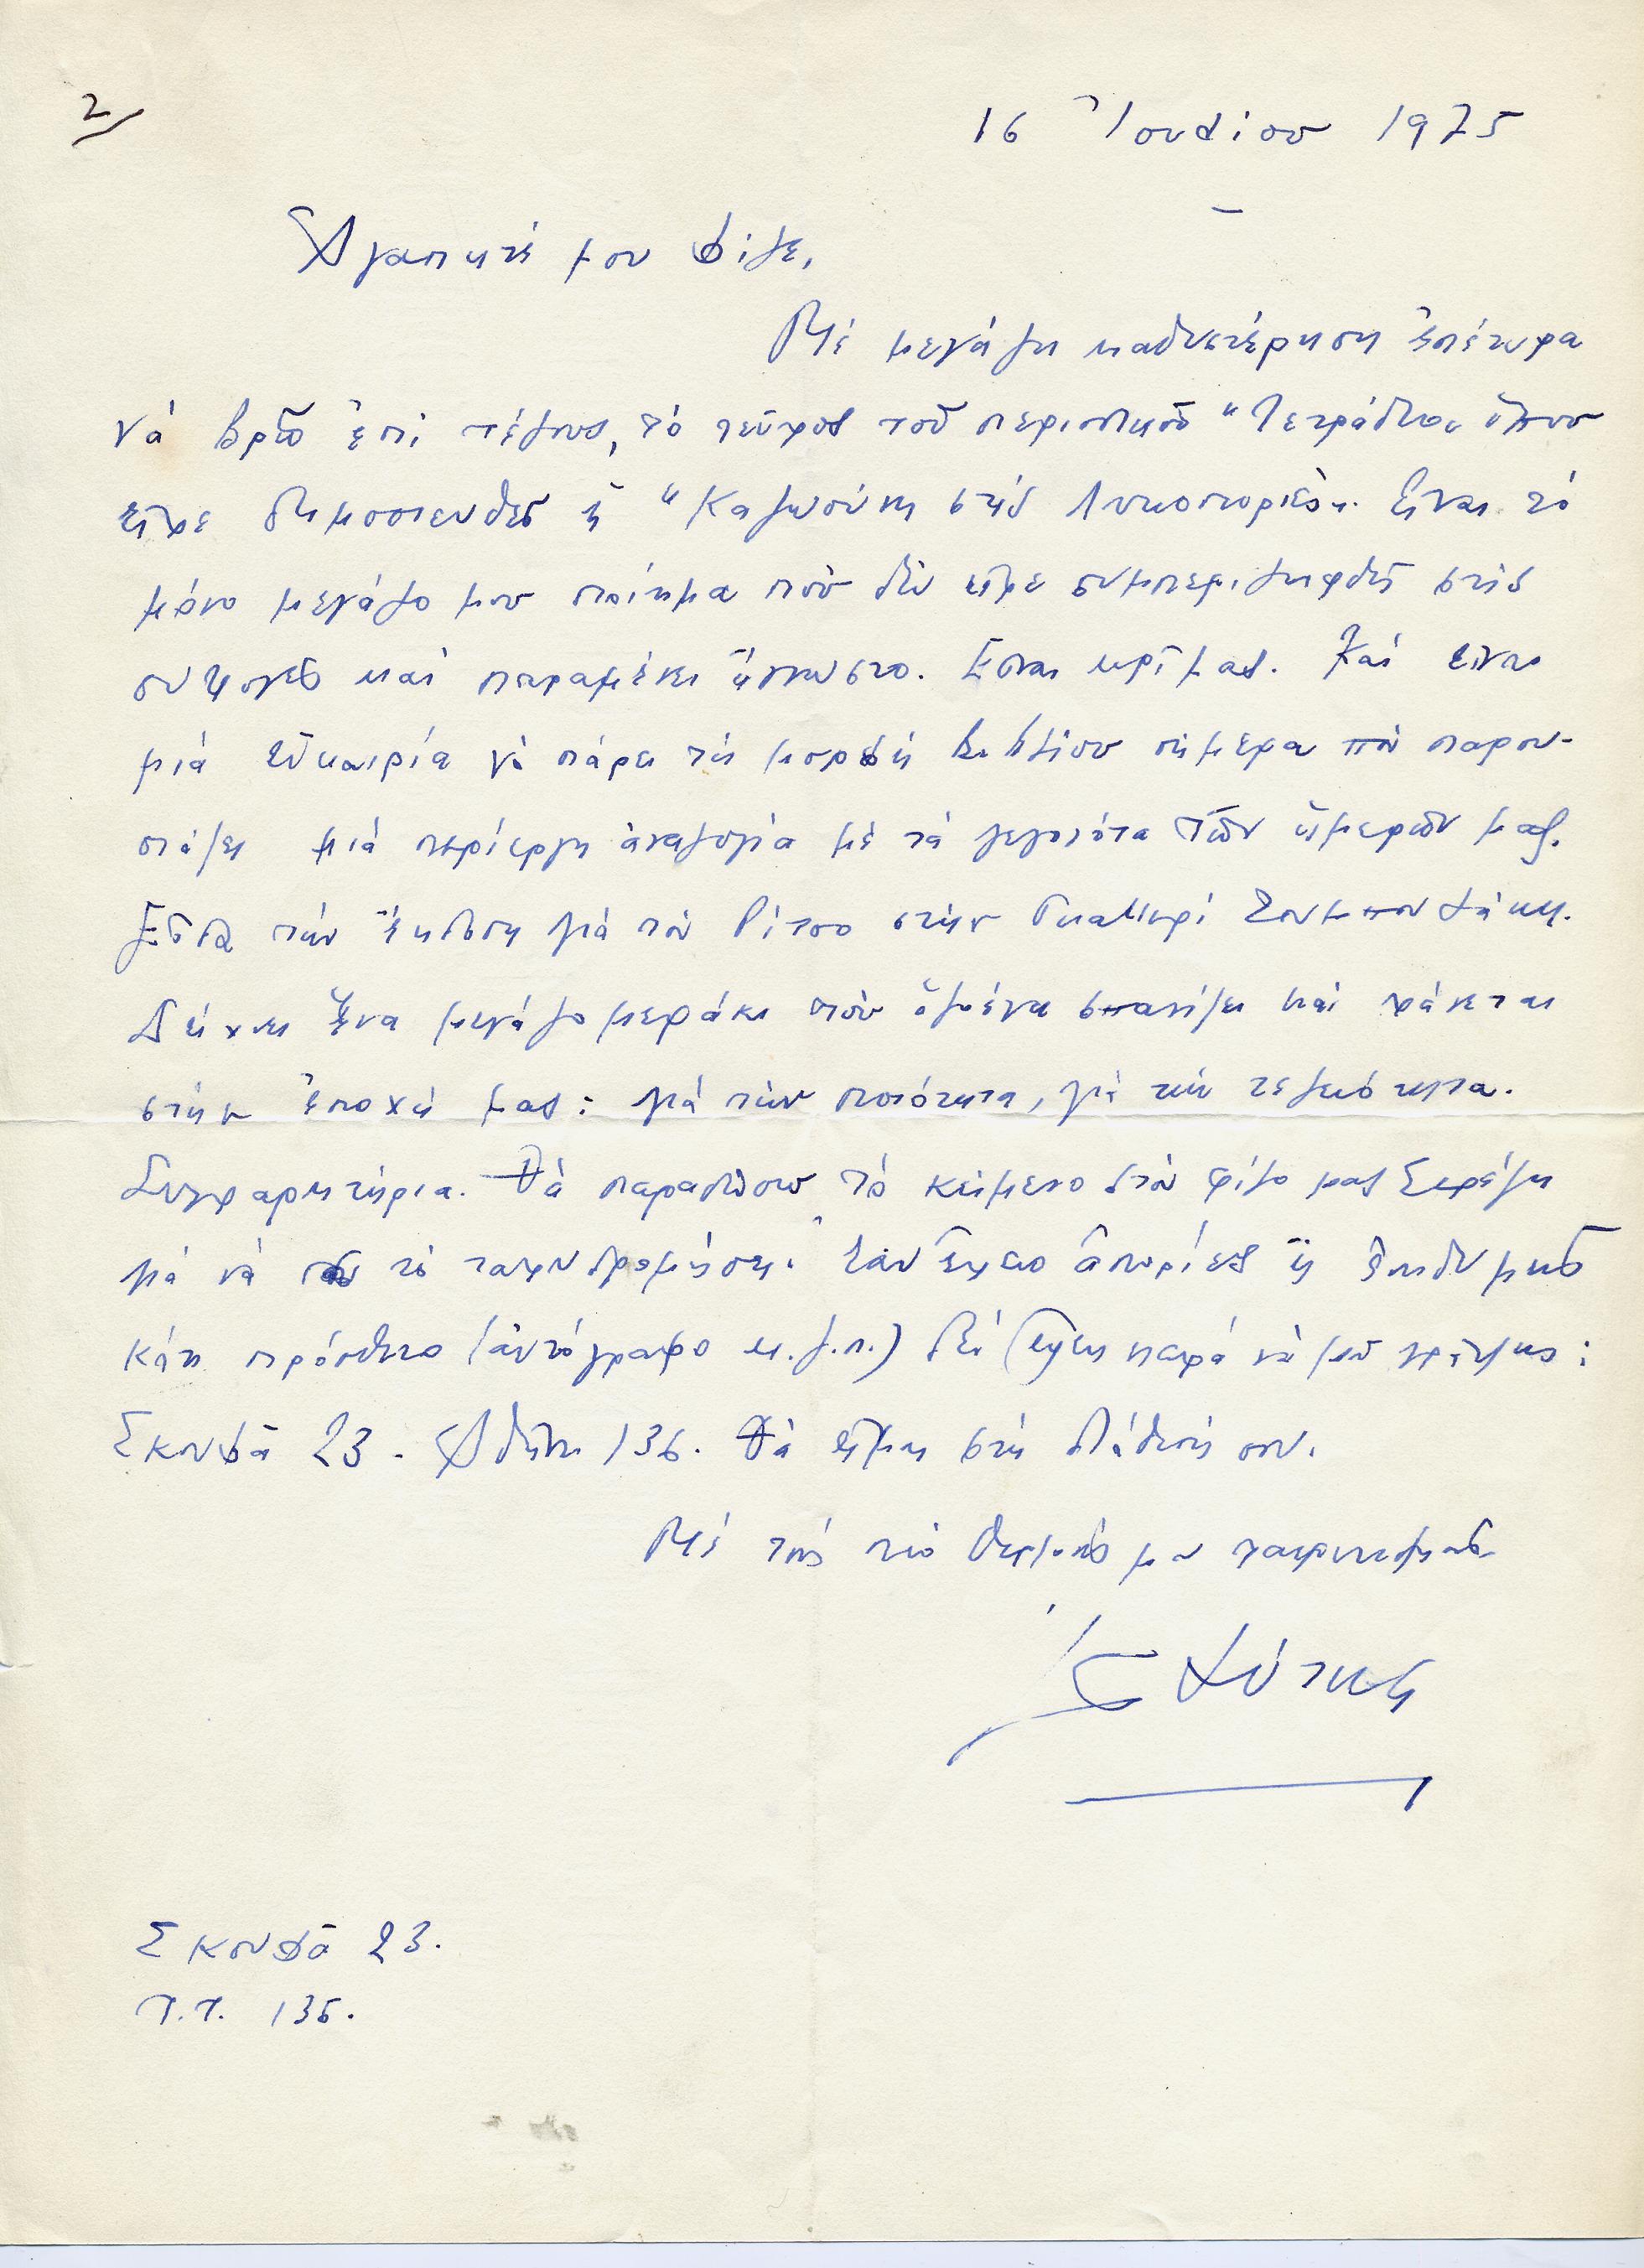 2/
16 Ἰουλίου 1975
Ἀγαπητέ μου φίλε,
Μέ μεγάλη καθυστέρηση ἐπέτυχα
νά βρῶ ἐπί τέλους, τό τεῦχος τοῦ περιοδικοῦ "Τετράδιο" ὅπου
εἶχε δημοσιευθεῖ ἡ "Καλωσύνη στίς Λυκοποριές". Εἶναι τό
μόνο μεγάλο μου ποίημα πού δέν εἶχε συμπεριληφθεῖ στίς
συλλογές καί παραμένει ἄγνωστο. Εἶναι κρῖμας. Καί εἶναι
μιά εὐκαιρία νά πάρει τή μορφή βιβλίου σήμερα πού παρου-
σιάζει μιά περίεργη ἀναλογία μέ τά γεγονότα τῶν ἡμερῶν μας.
Εἶδα τήν ἔκδοση γιά τόν Ρίτσο στήν Γκαλλερί Ζουμπουλάκη.
Δείχνει ἕνα μεγάλο μεράκι πού ὁλοένα σπανίζει καί χάνεται
στήν ἐποχή μας: γιά τήν ποιότητα, γιά τήν τελειότητα.
Συγχαρητήρια. Θά παραδώσω τό κείμενο στόν φίλο μας
γιά νά τό ταχυδρομήσει. Ἐάν ἔχεις ἀπορίες ἤ ἐπιθυμεῖς
κάτι πρόσθετο (αὐτόγραφο κ.λ.π.) δέν ἔχεις παρά νά μοῦ γράψεις:
Σκουφᾶ 23 - Ἀθήνα 136. Θά εἶμαι στή διάθεσή σου.
Μέ τούς πιό θερμούς μου χαιρετισμούς
Ἐλύτης
Σκουφᾶ 23.
Τ.Τ. 136.